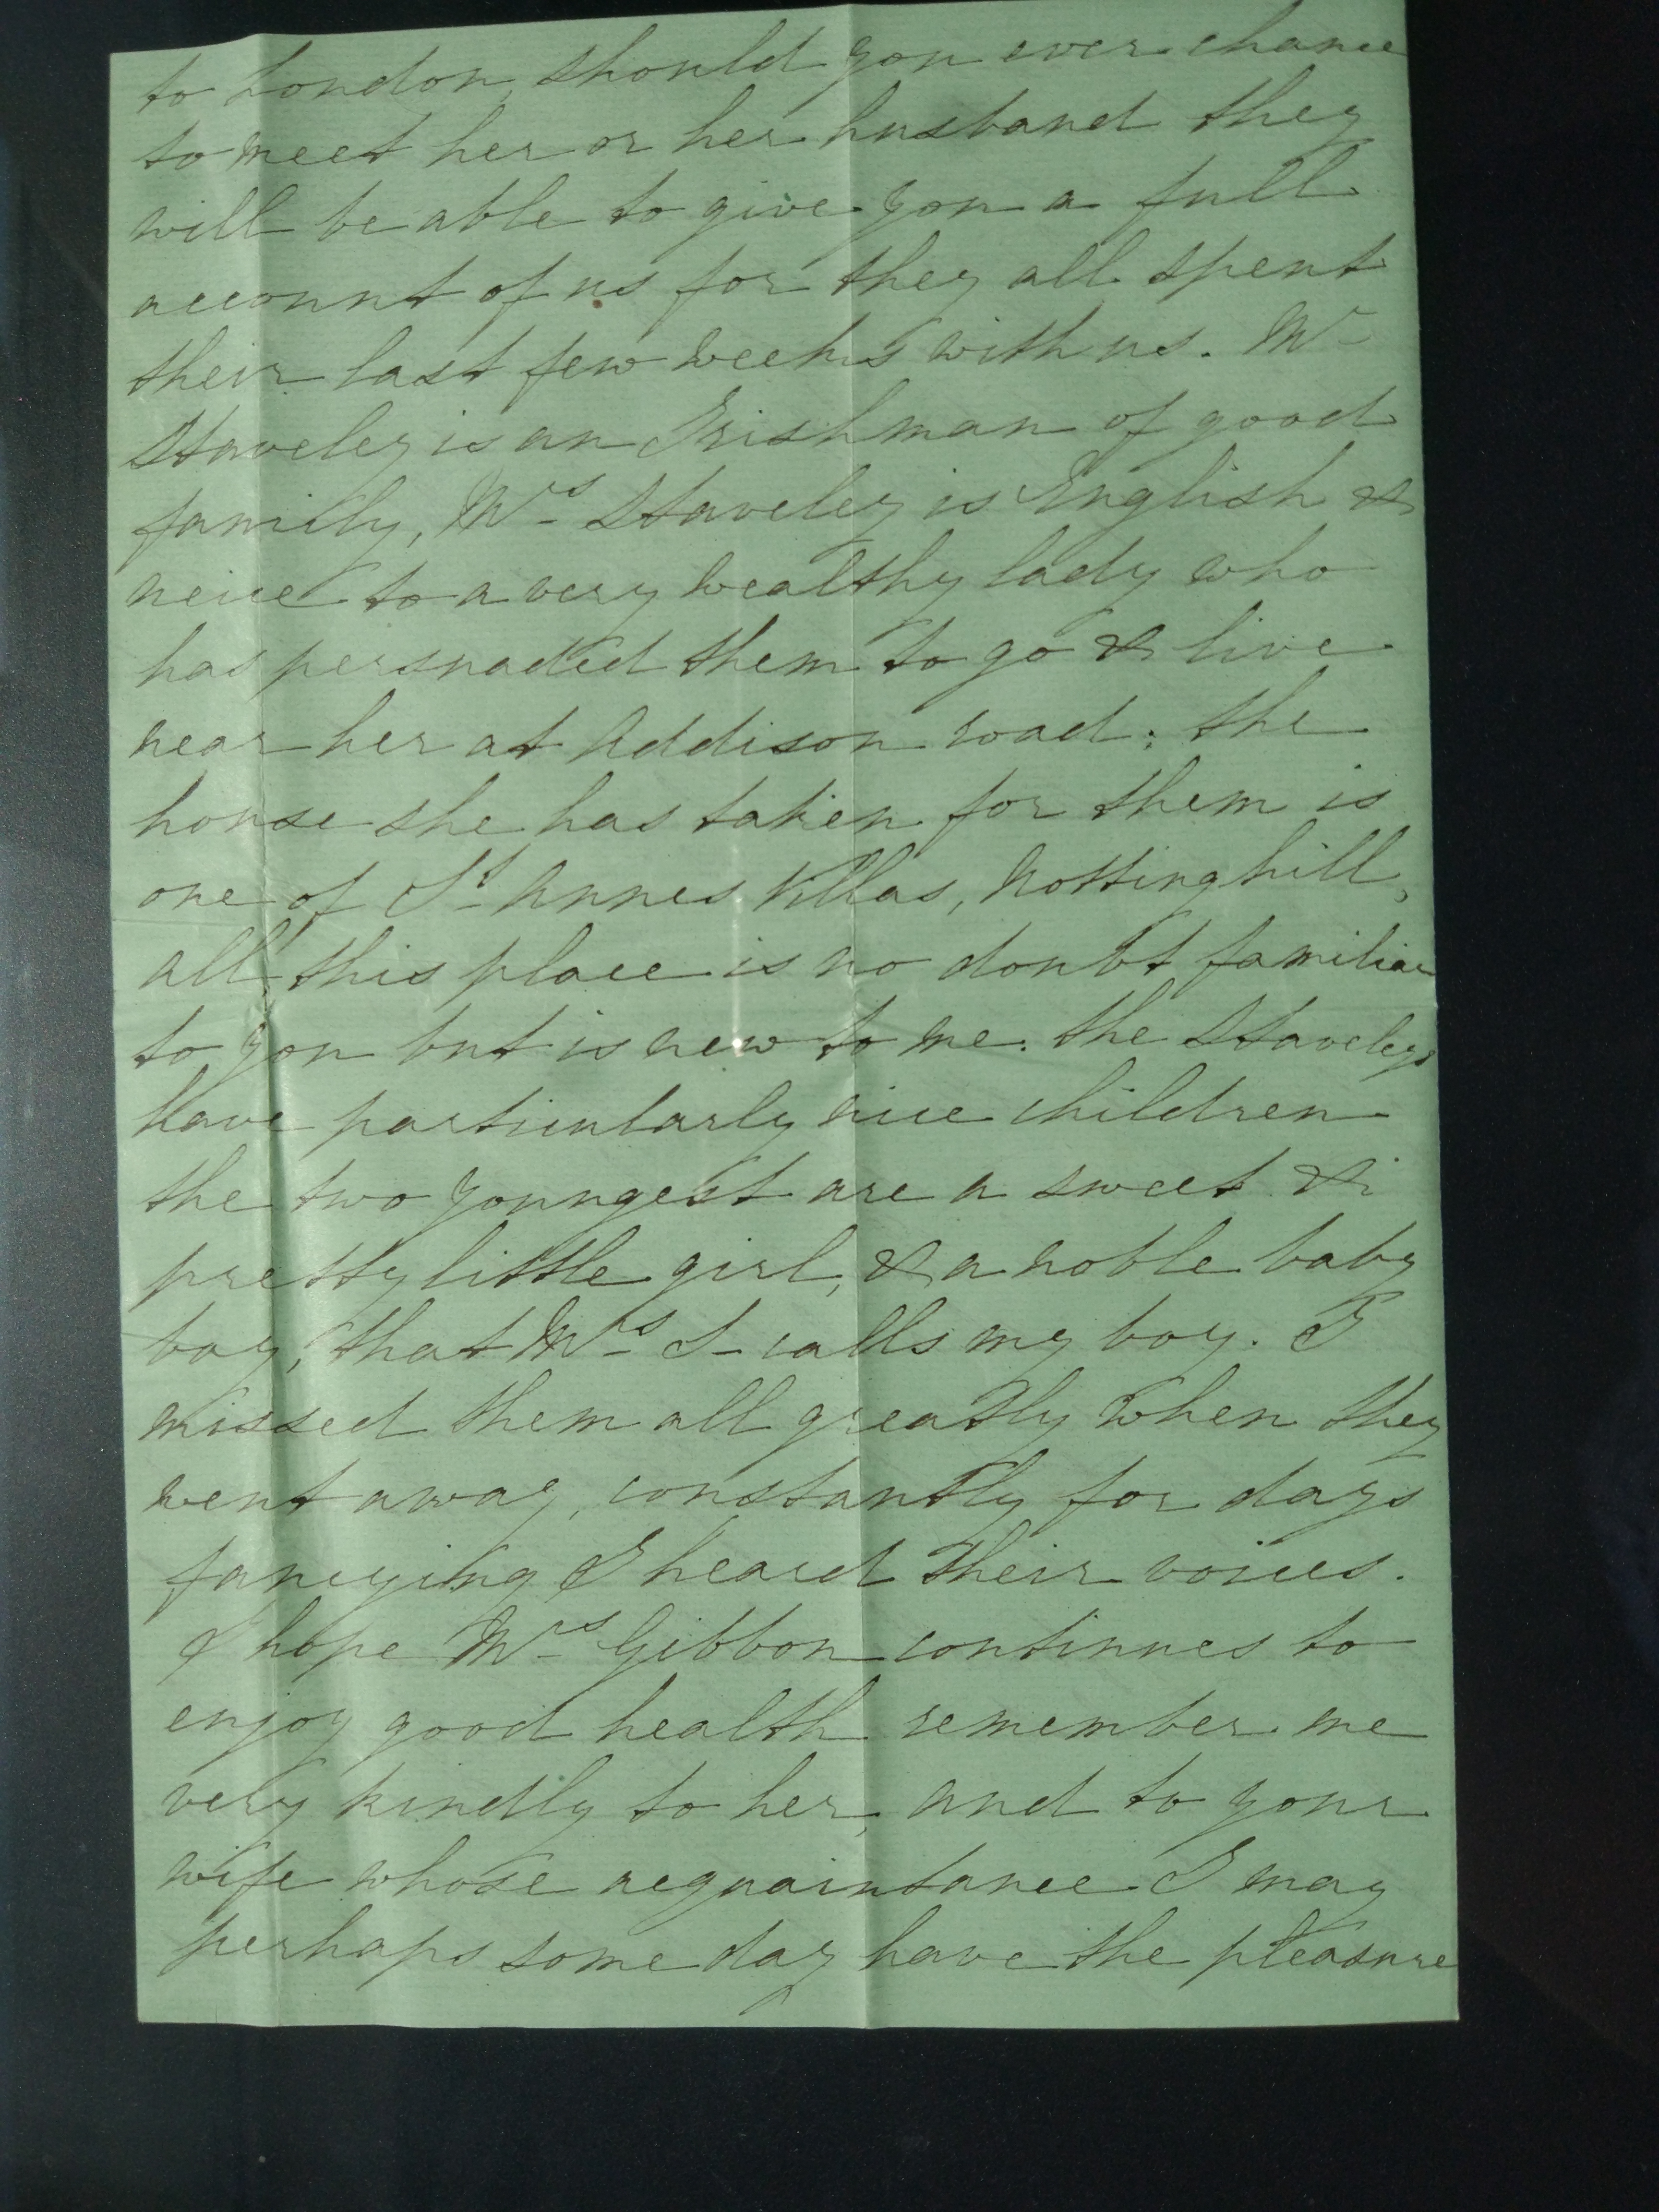 to London, should you ever chance
to meet her or her husband they
will be able to give you a full
account of us for they all spent
their last few weeks with us. Mr
Staveley is an Irishman of good
family, Mrs Staveley is English &
neice to a very wealthy lady who
has persuaded them to go & live
near her at Addison road; the
house she has taken for them is
one of St Annes Villas, Notting hill,
all this place is no doubt familiar
to you but is new to me. the Staveleys
have particularly nice children
the two youngest are a sweet &
pretty little girl, & a noble baby
boy, that Mrs S- calls my boy. I
missed them all greatly when they
went away, constantly for days
fancying I heard their voices.
I hope Mrs Gibbon continues to
enjoy good health remember me
very kindly to her, and to your
wife whose acquaintance I may
perhaps some day have the pleasure